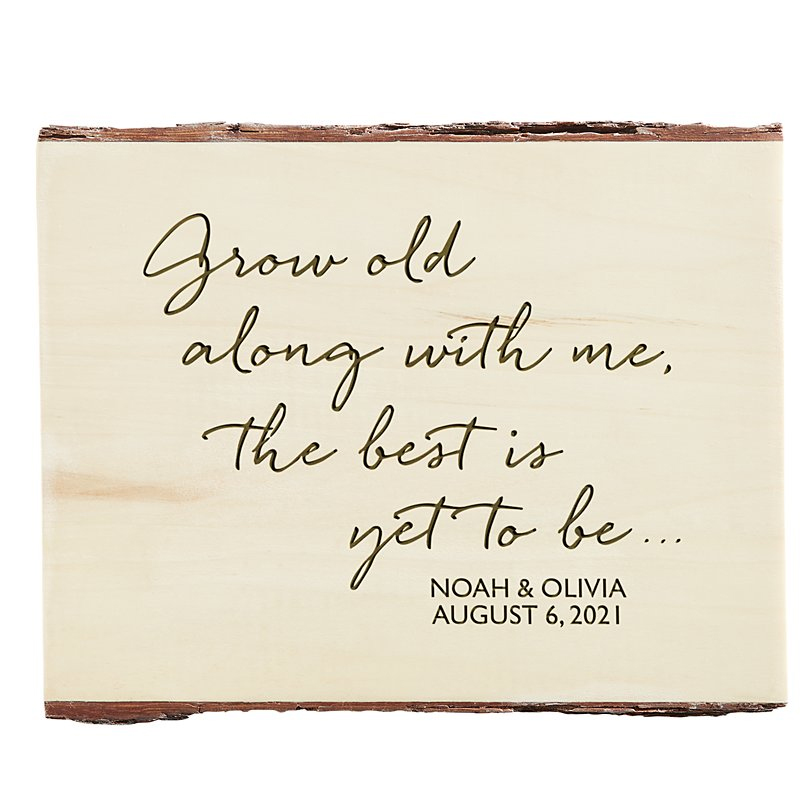 Grow old
along with me,
the best is
yet to be...
NOAH & OLIVIA
AUGUST 6, 2021